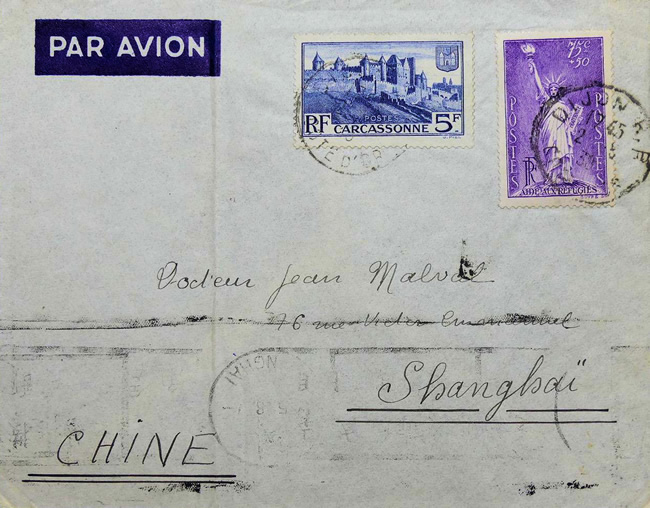 PAR AVION
RF
POSTES
CARCASSONNE
5F
75c
+50
POSTES
POSTES
RF
AIDE AUX RÉFUGIÉS
DIJON R.P.
CÔTE D'OR
Docteur Jean Malval
76 rue Victor Emmanuel
Shanghaï
CHINE